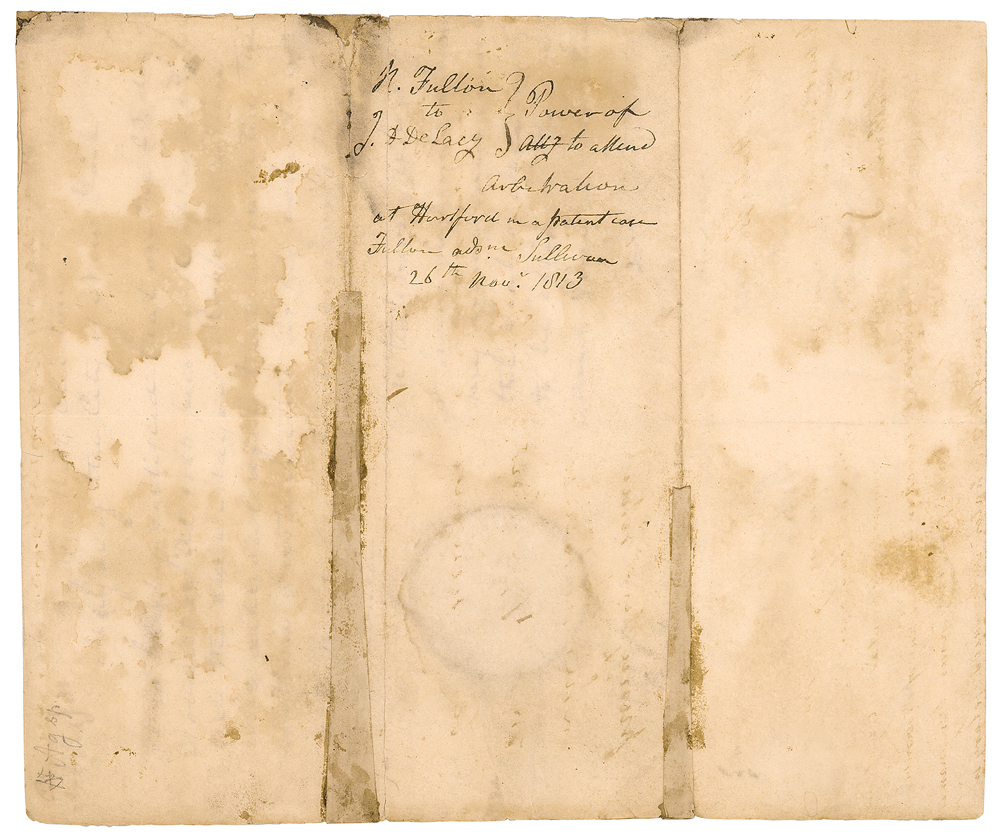 R. Fulton } Power of
to
J. D DeLacy } Atty to attend
Arbitration
at Hartford in a patent case
Fulton adsm Sullivan
26th Novr. 1813